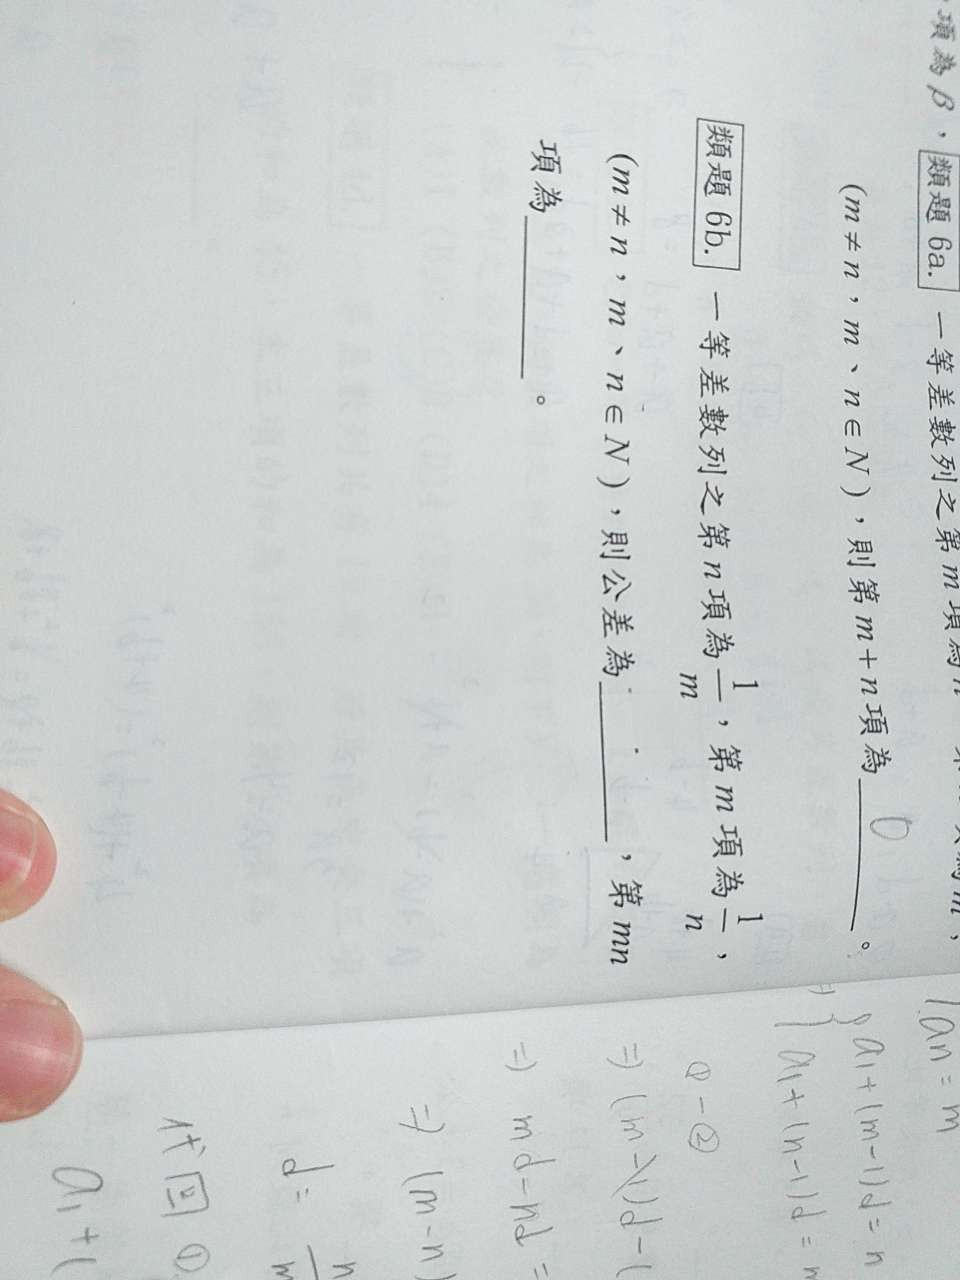 項為β，
類題 6a. 一等差數列之第 m 項為 n
(m ≠ n，m、n ∈ N)，則第 m + n 項為 0 。
類題 6b. 一等差數列之第 n 項為 1/m，第 m 項為 1/n，
(m ≠ n，m、n ∈ N)，則公差為 ，第 mn
項為 。
an = m
⇒ { a1 + (m-1)d = n
a1 + (n-1)d = m
① - ②
⇒ (m-1)d - (
⇒ md - nd =
⇒ (m-n)
d = n m
代回 ①
a1 + (